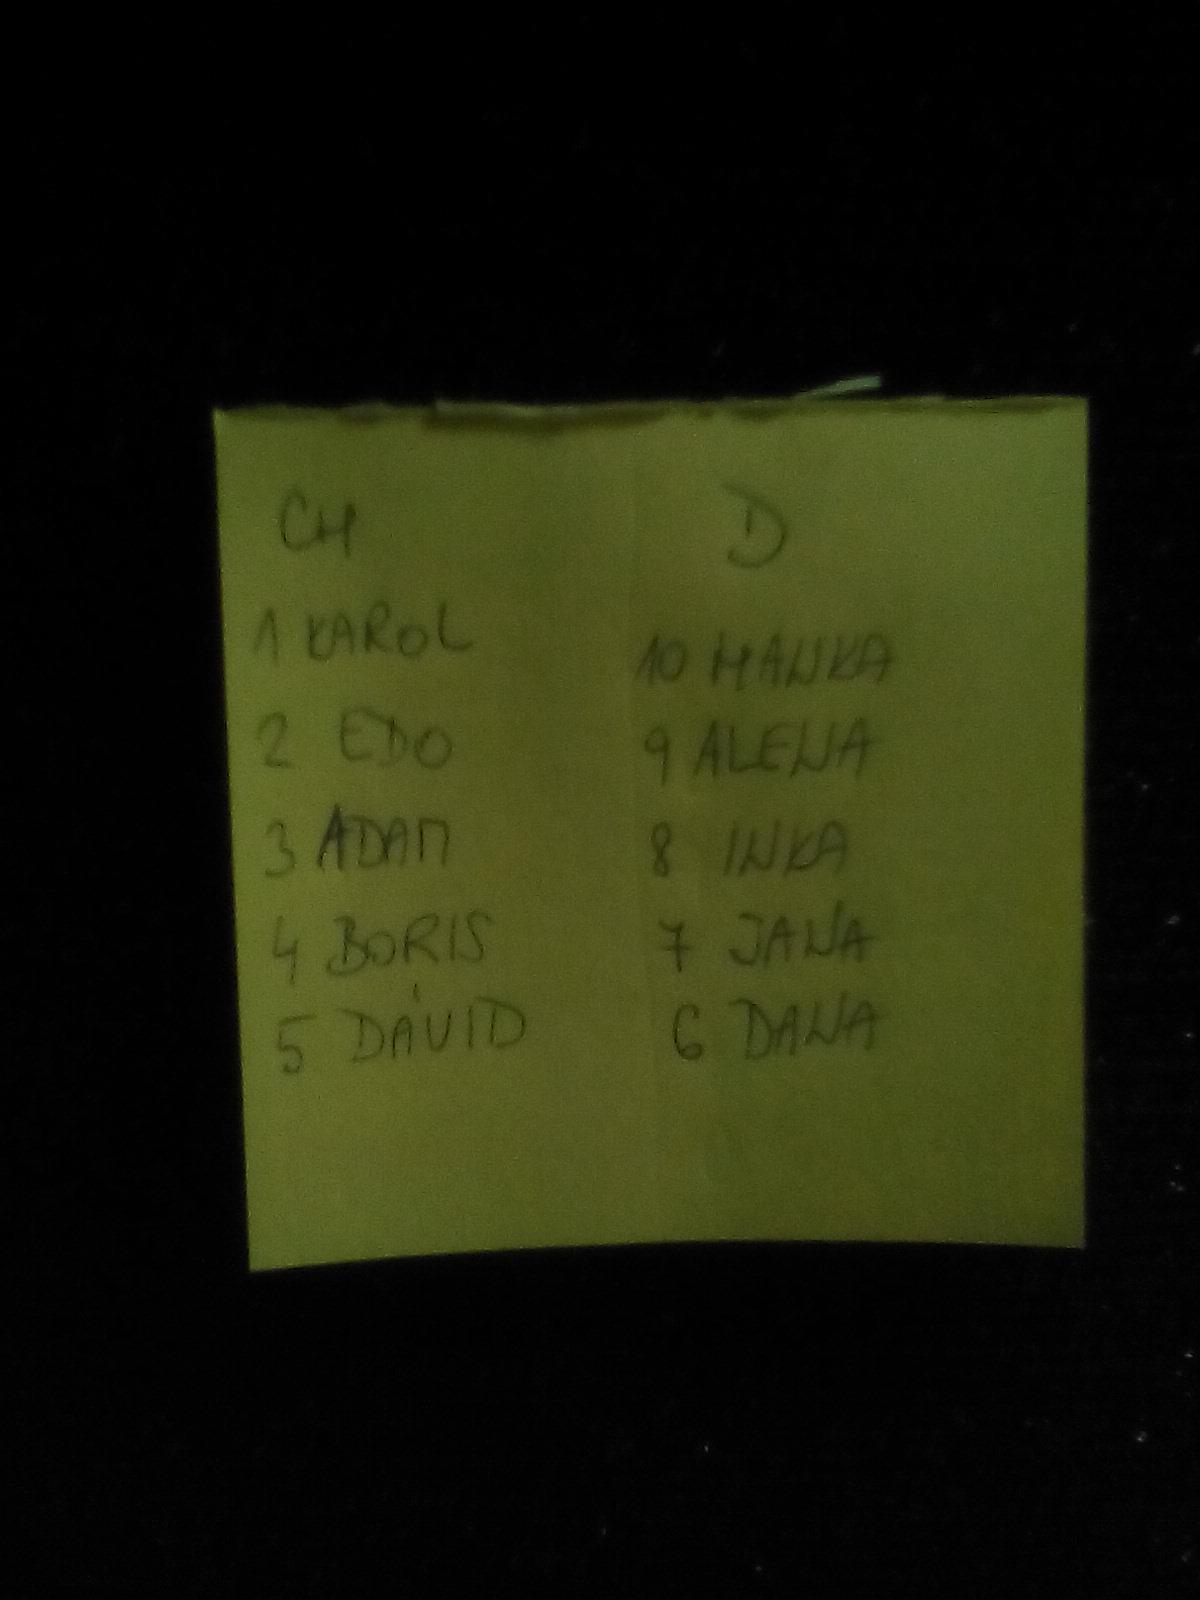 CH D
1 KAROL 10 HANKA
2 EDO 9 ALENA
3 ADAM 8 INKA
4 BORIS 7 JANA
5 DÁVID 6 DANA